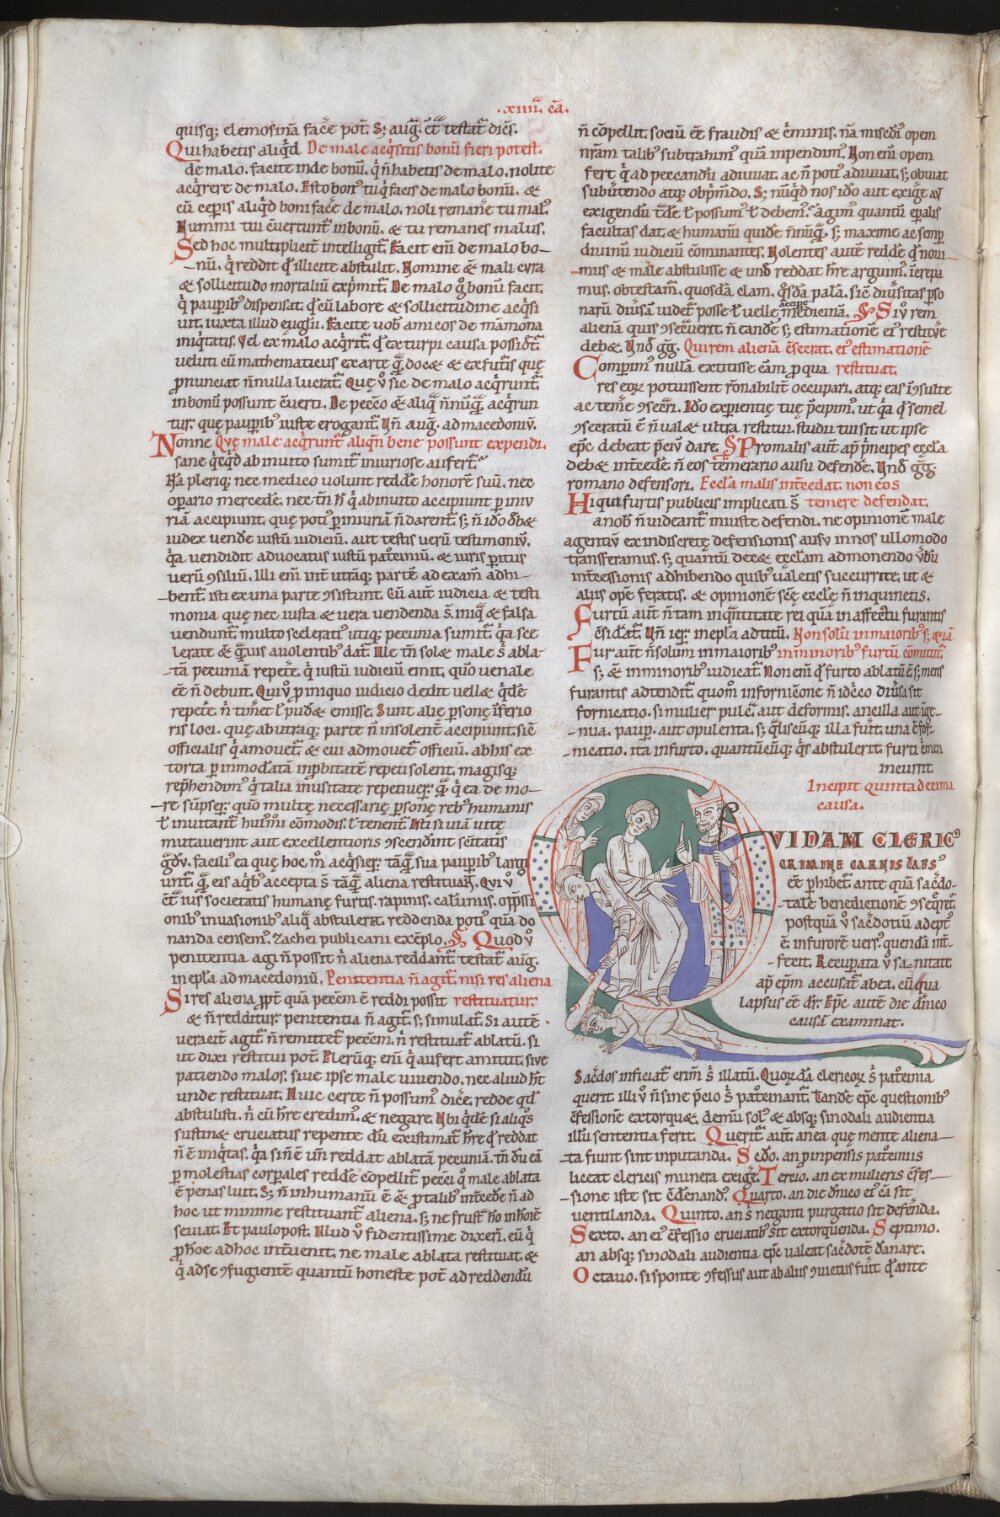 .xiiii. cā.
quisq; elemosinā facẽ pot̃. S; aug̃. c̃t̃ testat̃ diċes.
Qui habetis aliq̇d De male acq̇sitis bonũ fieri potest.
de malo. facite inde bonũ. q̇ ñ habetis de malo. nolite
acq̇rere de malo. Esto bon᾽ tu q̇ facis de malo bonũ. &
cũ cep̃is aliq̇d boni facẽ de malo. noli remanẽ tu mal᾽.
Nummi tui c̃vertunt᷑ in bonũ. & tu remanes malus.
Sed hoc multiplicit̃ intelligit᷑. Facit eni͂ de malo bo-
nũ. q̇ reddit q̃ illicite abstulit. Nomine & mali cura
& sollicitudo mortaliũ exp̃mit᷑. De malo g̊ bonũ facit.
q̇ paupib᷒ dispensat. q̃ cũ labore & sollicitudine acq̇si
vit. iuxta illud euḡlii. Facite vob᷒ amicos de mãmona
iniq̇tatis. Vel ex malo acq̇rit᷑. q̃ ex turpi causa possidet᷑
veluti cũ mathematicus ex arte quā docet & ex futis que
p̱nunciat ñ nulla lucrat᷑. Quę v̊ sic de malo acq̇runt᷑
in bonũ possunt c̃verti. De pecc̃o & aliq̃ ñ nũq̃ acq̇run
tur. que paupib᷒ iuste erogant᷑. Uñ aug. ad macedoniũ.
Nonne Quę male acq̇runt᷑ aliqñ bene possunt expendi.
sane q̇cq̇d ab inuito sumit᷑ iniuriose aufert᷑.
Nā pleriq; nec medico volunt reddẽ honorē suũ. nec
operario mercedē. nec tñ hi q̇ ab inuito accipiunt p iniu
riā accipiunt. quę poti᷒ p iniuriā ñ darent᷑. S; ñ ido debet
iudex vendẽ iustũ iudiciũ. aut testis verũ testimoniũ.
q̇a vendidit advocatus iustũ patrociniũ. & iuris peritus
verũ ꝯsiliũ. Illi eni͂ int̃ utrāq; partē ad examē adhi-
bent᷑. isti ex una parte ꝯsistunt. Cũ autē iudicia & testi
monia quę nec iusta & vera vendenda s̄. iniq̇ & falsa
vendunt᷑. multo scelerati᷒ utiq; pecunia sumit᷑. q̇a sce
lerate & q̃uis a volentib᷒ dat᷑. Ille tñ solet male s̄ abla-
tā pecuniā repetẽ. q̇ iustũ iudiciũ emit. quo venale
eē ñ debuit. Qui v̊ p iniquo iudicio dedit vellet q̇dē
repetẽ. ñ timet̃ l̃ pudet emisse. Sunt alię psonę inferio
ris loci. quę ab utraq; parte ñ insolent᷑ accipiunt. sic̃
officialis q̇ amovet᷑ & cui admovet᷑ officiũ. ab his ex
torta p inmod̃atā inp̱bitatē repeti solent. magisq;
rep̱hendim᷒ q̇ talia inusitate repetiver̃ quā q̇ ea de mo-
re sũpser̃. quo multę necessarię psonę reb᷒ humanis
l̃ invitant᷑ hui᷒modi c̃modis. l̃ tenent᷑. Isti si viā vitę
mutaverint aut excellentioris ꝯscendũt sc̃itatis
g̃dũ. facili᷒ ea que hoc m̊ acq̇sier̃. tāq̃ sua paupib᷒ largi
unt᷑. quā eis a q̇b᷒ accepta s̄ tāq̃ aliena restituant. Qui v̊
c̃t̃ ius societatis humanę furtis. rapinis. calũniis. op̱ssi
onib᷒ invasionib᷒ aliq̃ abstulerat. reddenda poti᷒ quā do
nanda censem᷒. Zachei publicani exẽplo. Quod v̊
penitentia agi ñ possit ñ aliena reddant᷑. testat᷑ aug.
in epl̃a ad macedoniũ. Penitentia ñ agit᷑. nisi res aliena
Si res aliena p̱pt̃ quā peccm̃ ē reddi possit restituatur.
& ñ redditur. penitentia ñ agit᷑. s; simulat᷑. Si autē
veracit̃ agit᷑. ñ remittet᷑ peccm̃. ñ restituat᷑ ablatũ. si
ut dixi restitui pot̃. Plerũq; eni͂ q̇ aufert amittit. sive
patiendo malos. sive ipse male vivendo. nec aliud h̃t
unde restituat. Huic certe ñ possum᷒ dicẽ. redde qđ
abstulisti. ñ cũ h̃re credim᷒. & negare. Ubi q̇dē si aliq̊s
sustinet cruciatus repente dũ existimat᷑ h̃re q̃ reddat
ñ ē iniq̇tas. q̇a si ñ ē uñ reddat ablatā pecuniā. tñ dũ eā
p molestias corporales reddẽ cõpellit᷑. pecc̃i q̃ male ablata
ē penas luit. S; ñ inhumanũ ē & p̱ talib᷒ int̃cedẽ ñ ad
hoc ut minime restituant᷑ aliena. s; ne frust᷑ ho in hoi͂ē
seviat. Et paulo post. Illud v̊ fidentissime dixeri͂. eũ q̇
p̱ hoĩe ad hoc int̃uenit. ne male ablata restituat. &
q̇ ad se ꝯfugientē quantũ honeste pot̃ ad reddendũ
ñ cõpellit. sociũ eē fraudis & c̃minis. nā misedi᷒ opem
nr̃am talib᷒ subtrahim᷒ quā inpendim᷒. Non eni͂ opem
fert q̇ ad peccandũ adiuvat. ac ñ poti᷒ adiuvat. s; obviat
subvertendo atq; obp̱mẽdo. S; nũq̇d nos ido aut exigẽ av
exigendũ t̃dẽ l̃ possum᷒ l̃ debem᷒. Agim᷒ quantũ ep̱alis
facultas dat᷑. & humanũ quidē ñ nũq̃. s; maxime ac semp
divinũ iudiciũ cõminantes. Nolentes autē reddẽ q̃ novi
mus & male abstulisse & unđ reddat h̃re arguim᷒. increpa
mus. obtestam᷑. quosdā clam. q̊sdā palā. sic̃ div̄sitas p̱so
narũ div̄sā videt᷑ posse l̃ velle accipẽ medicinā. Si v̊ rem
alienā quis ꝯsecrauerit. ñ eandē s; estimationē ei᷒ restitvẽ
debet. Uñđ gg. Qui rem alienā c̃secrat. ei᷒ estimationē
Comp̱im᷒ nullā extitisse cām p̱ qua restituat.
res eorũ potuissent ronabilit̃ occupari. atq; eas inc̃sulte
ac temẽ ꝯsecr̃i. Ido experientię tuę p̱cipim᷒. ut q̇a q̃ semel
ꝯsecratũ ē ñ valet ultra restitui. studii tui sit. ut ipse
ep̃c debeat p̱ciũ dare. Pro malis aut̃ ap̃ p̱ncipes eccl̃a
debet int̃cedẽ. ñ eos tẽmerario ausu defendẽ. Unđ gg.
romano defensori. Eccl̃a malis int̃cedat. non eos
Hi qui furtis publicis inplicati s̄ temere defendat.
a nob᷒ ñ videant᷑ iniuste defendi. ne opinionē male
agentiũ ex indiscretę defensionis ausu in nos ullo modo
transferamus. s; quantũ decet eccl̃am admonendo v̄bũ
int̃cessionis adhibendo quib᷒ valetis succurrite. ut &
aliis opē feratis. & opinionē sc̃ę eccl̃ę ñ inquinetis.
Furtũ aut̃ ñ tam in quantitate rei quā in affectu furantis
c̃sid̃at᷑. Uñ ier̃. in epl̃a ad titũ. Non solũ in maiorib᷒ s; etiā
Fur aut̃ ñ solum in maiorib᷒ in minorib᷒ furtũ c̃mittit᷑.
s; & in minorib᷒ iudicat᷑. Non eni͂ q̃ furto ablatũ ē s; mens
furantis adtendit᷑. quom̊ in fornic̃one ñ idc̃co div̄sa sit
fornicatio. si mulier pulc̃. aut deformis. ancilla aut inge-
nua. paup. aut opulenta. s; q̃liscũq; illa fuit. una ē for-
nicatio. ita in furto. quantũcũq; q̇s abstulerit. furti c̃men
incurrit.
Incipit quinta decima
causa.
QVIDAM CLERIC᷒
CRIMINE CARNIS LAPS᷒
eē p̱hibet᷑ ante quā sac̃do-
tale benedictionē ꝯseq̇r̃t᷑.
postquā v̊ sac̃dotiũ adept᷒
ē. in furore vers᷒. quendā int̃-
fecit. Recuperata v̊ sanitate
ap̃ ep̃m accusat᷑ ab ea. cũ qua
lapsus eē d̃r. Ep̃c autē die dñico
causā examinat.
Sac̃dos inficiat᷑ crim̃ s̄ illatũ. Quorũdā clericorũ s̄ patrocinia
querit. illi v̊ ñ sine p̱cio s̄ patrocinant᷑. Tandē ep̃c questionib᷒
c̃fessionē extorquet. demũ sol᷒ & absq; sinodali audientia
illi᷒ sententiā ferit. Querit᷑ aut̃. an ea quę mente aliena-
ta fiunt sint inputanda. Secdo. an p̱ inpensis patrociniis
liceat clericis munera exigẽ. Tercio. an ex mulieris c̃fes-
sione iste sit c̃dēnand᷒. Quarto. an die dñico ei᷒ cā sit
ventilanda. Quinto. an s̄ neganti purgatio sit defenda.
Sexto. an ei᷒ c̃fessio cruciatib᷒ sit extorquenda. Septimo.
an absq; sinodali audientia ep̃c valeat sac̃dotē dānare.
Octauo. si sponte ꝯfessus aut ab aliis ꝯvictus fuit q̃ ante